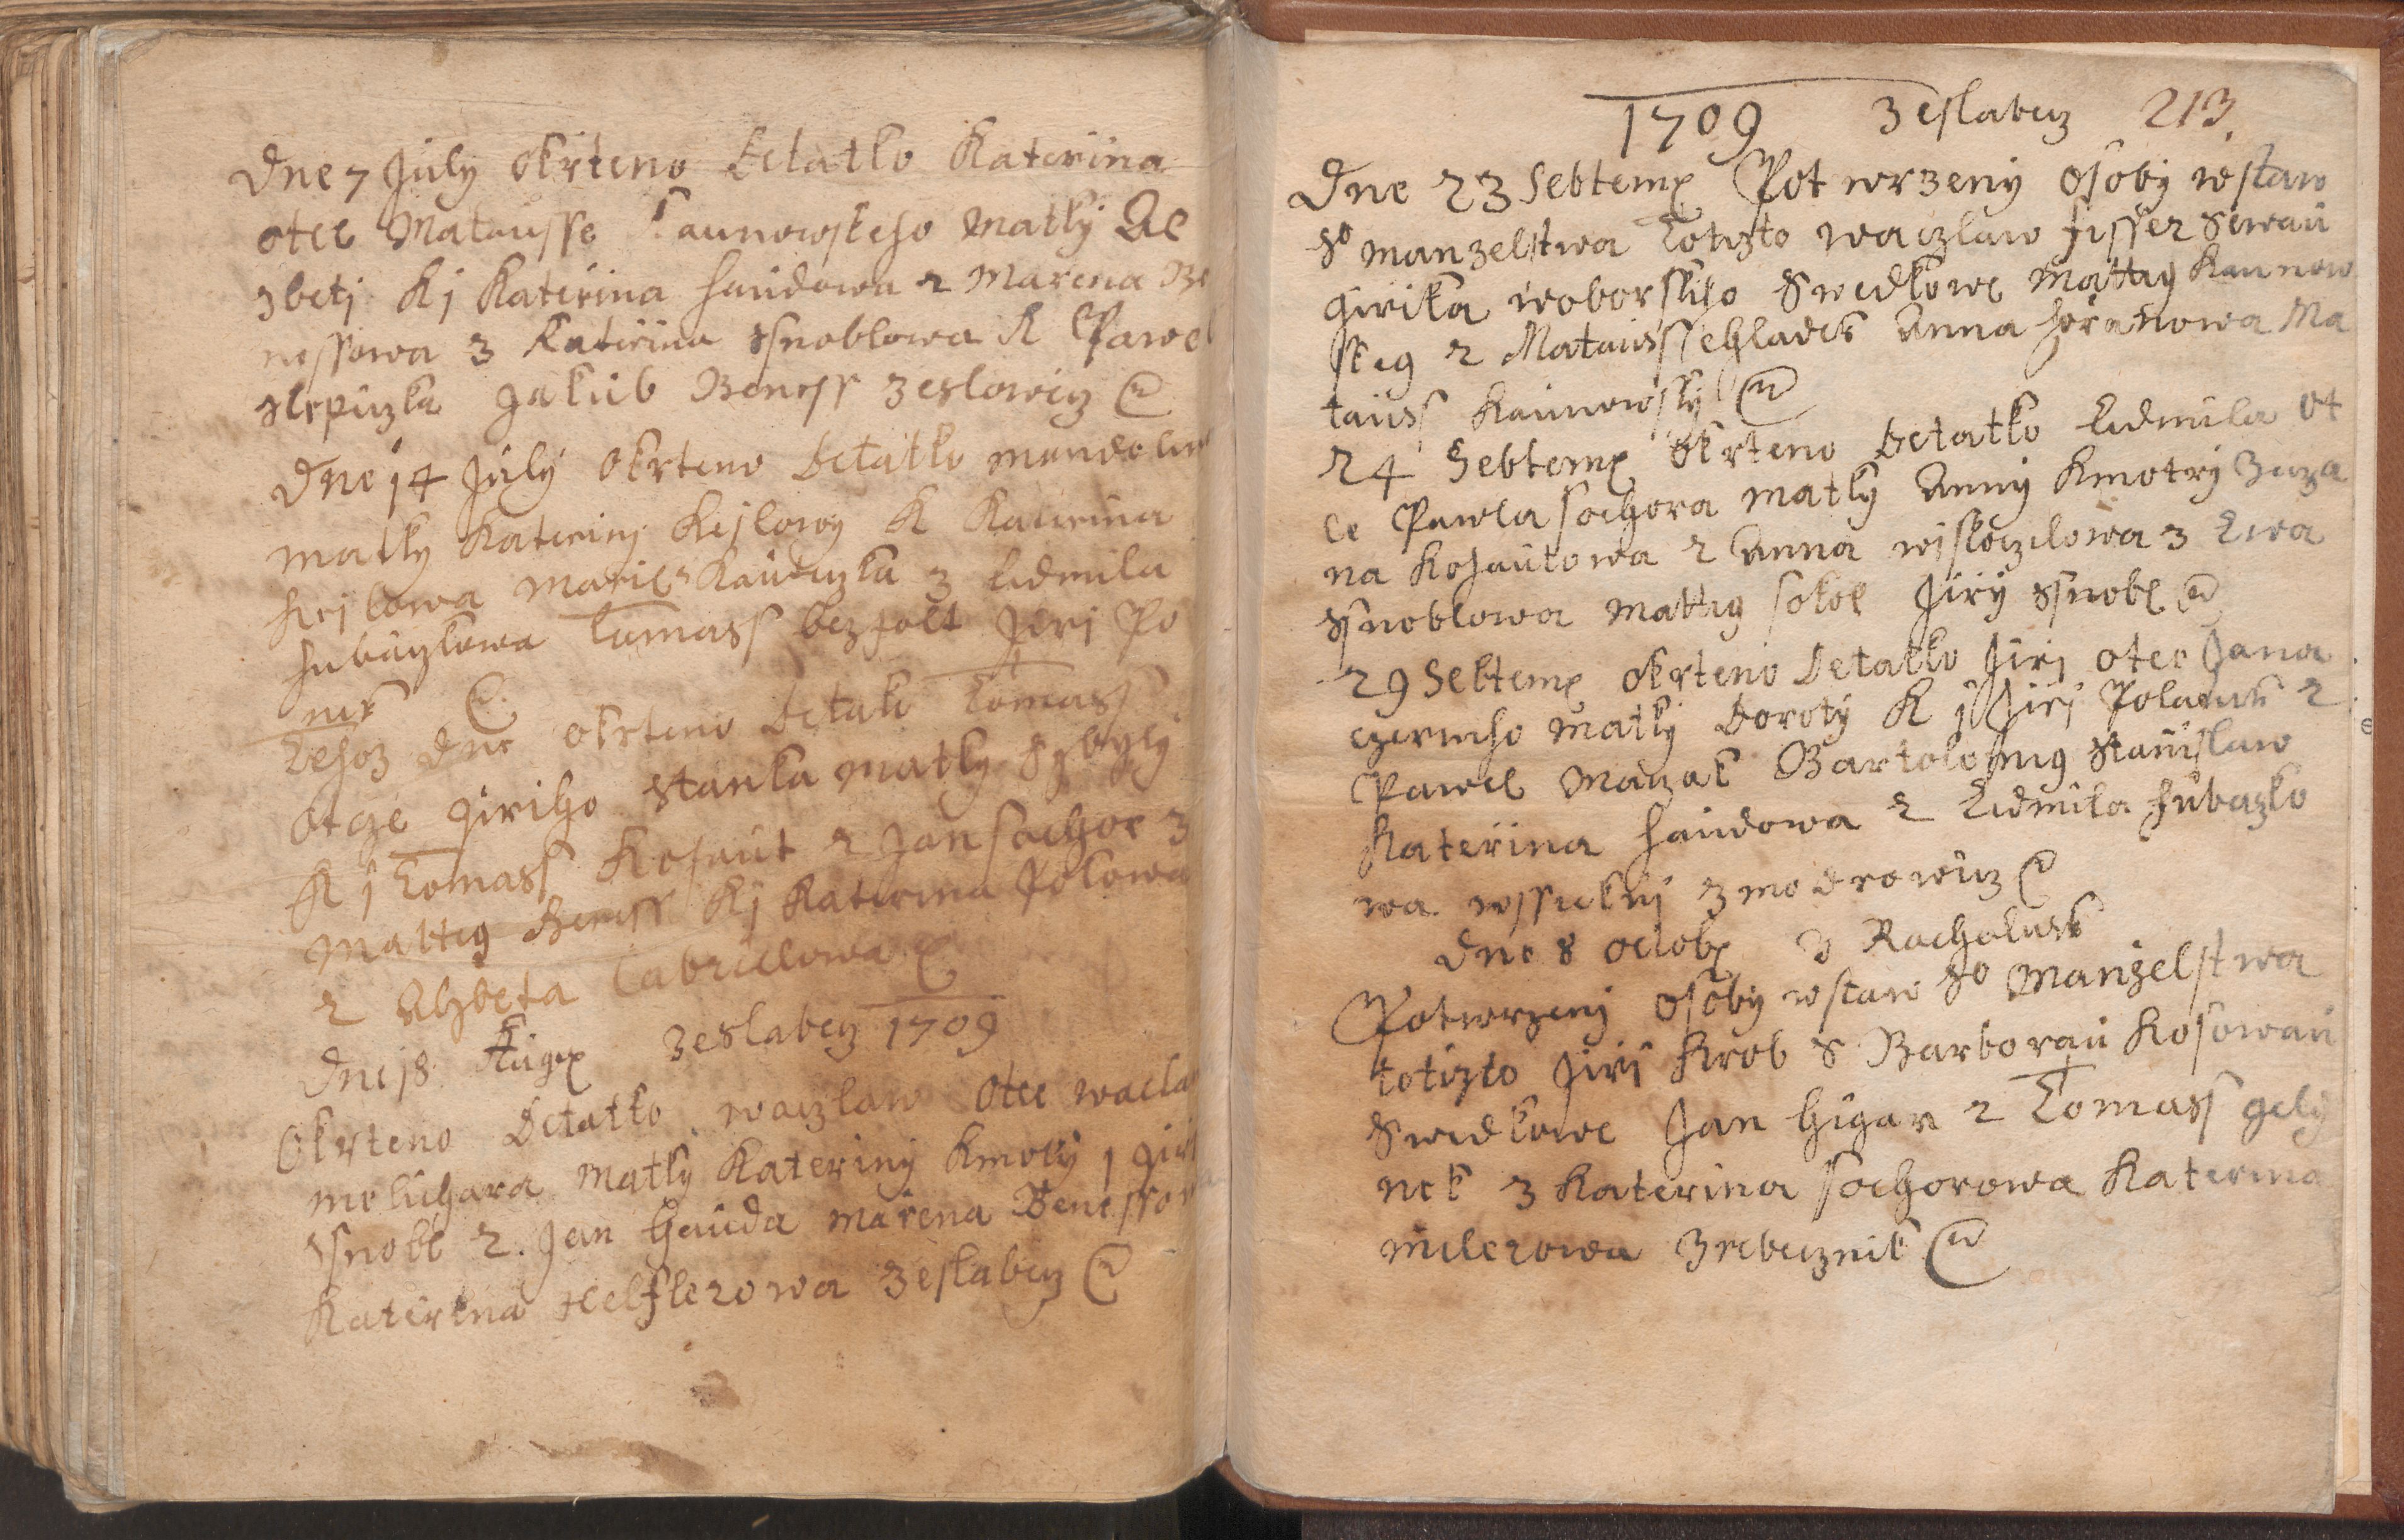 Dne 7 July okrteno Detatko Katerina
otce Matausse Kaunowskeho Matky Al
zbeti K j Katerina haudowa 2 Marena Be
nessowa 3 Katerina Ssnoblowa K Pawel
Slepiczka Jakub Beness zeslowicz
Dne 14 July okrteno Detatko mandelina
matky Kateriny Kejlowy K Katerina
hejlowa Marie Kauduzka 3 Lidmila
hubaczkowa Tomass bezpolt Jiri Po
Tehoz dne okrteno Detatko Tomass
otcze Giriho Stanka matky
K j Tomass Kohaut 2 Jan sochor 3
Mattieg Beness K j Katerina Polowa
2 Alzbeta Cabrielowa
Dne 18 Aug 3eslabecz 1709
Okrteno Detatko waczlaw otce wacla
melichara Matky Kateriny Kmotri j Giri
ssnobl 2. Jan Hauda marena Benessow
Katerina Helflerowa zeslabecz
1709 3eslabecz 213.
Dne 23 Sebtemb Potwrzeny osoby wstaw
So manzelstwa Totizto waczlaw fisser Sewau
Girika woborskiho Swedkowe Mattieg Kaunow
skeg 2 Matauss Hladik Anna horanowa Ma
tauss Kaunowsky
24 Sebtemb okrteno Detatko Lidmila ot
ce Pawla sochora matky Anny Kmotry Zuza
na Kohautowa 2 Anna wiskoczilowa 3 Ewa
Ssnoblowa Mattieg sokol Jiry Ssnobl
29 Sebtemb okrteno Detatko Jiri otce Jana
czerneho Matky Doroty K j Jiri Polacek 2
Pawel Mauzak Bartolomeg Stanislaw
Katerina haudowa 2 Lidmila hubaczko
wa wssickni zmodrowicz
Dne 8 octob 3 Racholusk
Potwrzeny osoby wstaw So Manzelstwa
totizto Jiri Krob S Barborau Kosowau
Swedkowe Jan Gigar 2 Tomass gely
nek 3 Katerina sochorowa Katerina
milerowa 3rebecznik